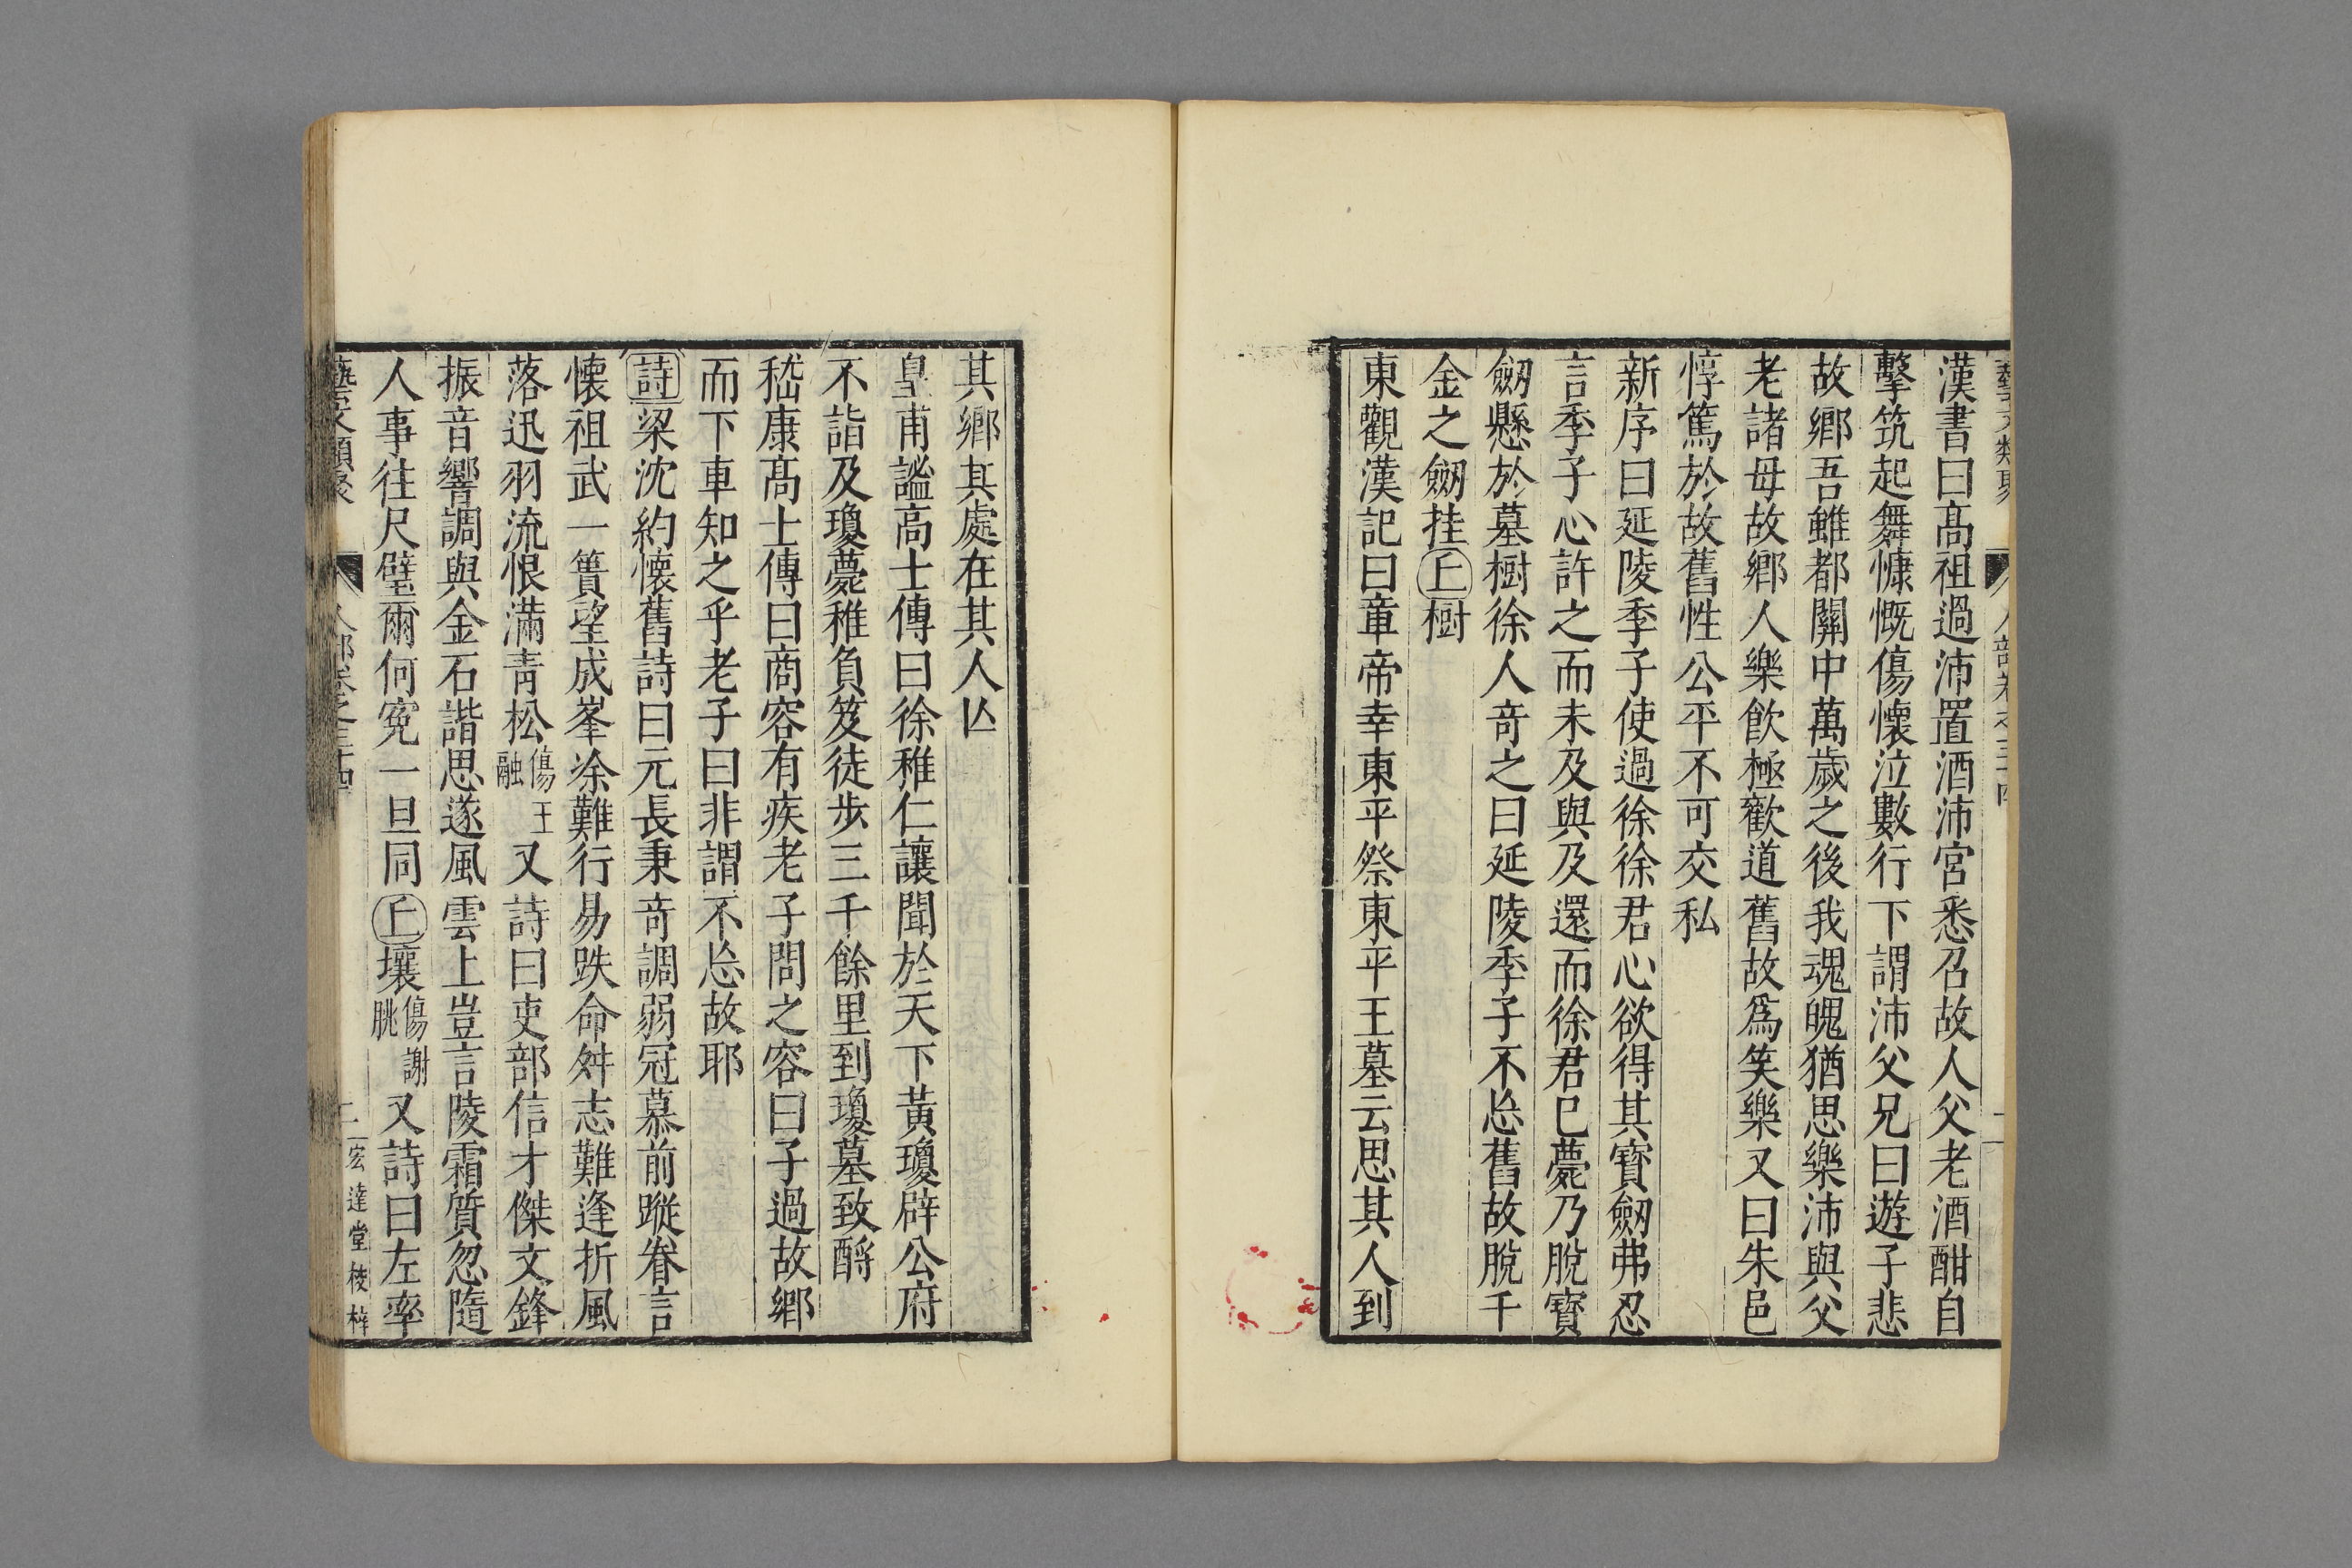 漢書曰髙祖過沛置酒沛宮悉召故人父老酒酣自
擊筑起舞慷慨傷懷泣數行下謂沛父兄曰遊子悲
故鄉吾雖都關中萬歲之後我魂魄猶思樂沛與父
老諸母故鄉人樂飲極歡道舊故爲笑樂又曰朱邑
惇篤於故舊性公平不可交私
新序曰延陵季子使過徐徐君心欲得其寳劒弗忍
言季子心許之而未及與及還而徐君巳薨乃脫寳
劒懸於墓樹徐人竒之曰延陵季子不忘舊故脫千
金之劒挂丘樹
東觀漢記曰章帝幸東平祭東平王墓云思其人到
其鄉其處在其人亾
皇甫謐高士傳曰徐稚仁讓聞於天下黃瓊辟公府
不詣及瓊薨稚負笈徒步三千餘里到瓊墓致酹
嵇康髙士傳曰商容有疾老子問之容曰子過故鄉
而下車知之乎老子曰非謂不忘故耶
詩梁沈約懷舊詩曰元長秉竒調弱冠慕前蹤眷言
懷祖武一簣望成峯涂難行易跌命舛志難逢折風
落迅羽流恨滿青松傷王融又詩曰吏部信才傑文鋒
振音響調與金石諧思逐風雲上豈言陵霜質忽隨
人事往尺璧爾何寃一旦同丘壤傷謝朓又詩曰左率
藝文類聚 人部卷之三十四 二 宏達堂校梓